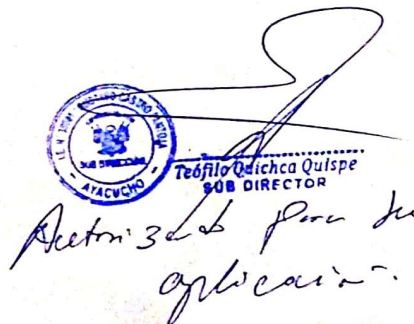 SUB DIRECCION
AYACUCHO
Teófilo Quichca Quispe
SUB DIRECTOR
Autorizado para su
aplicación.